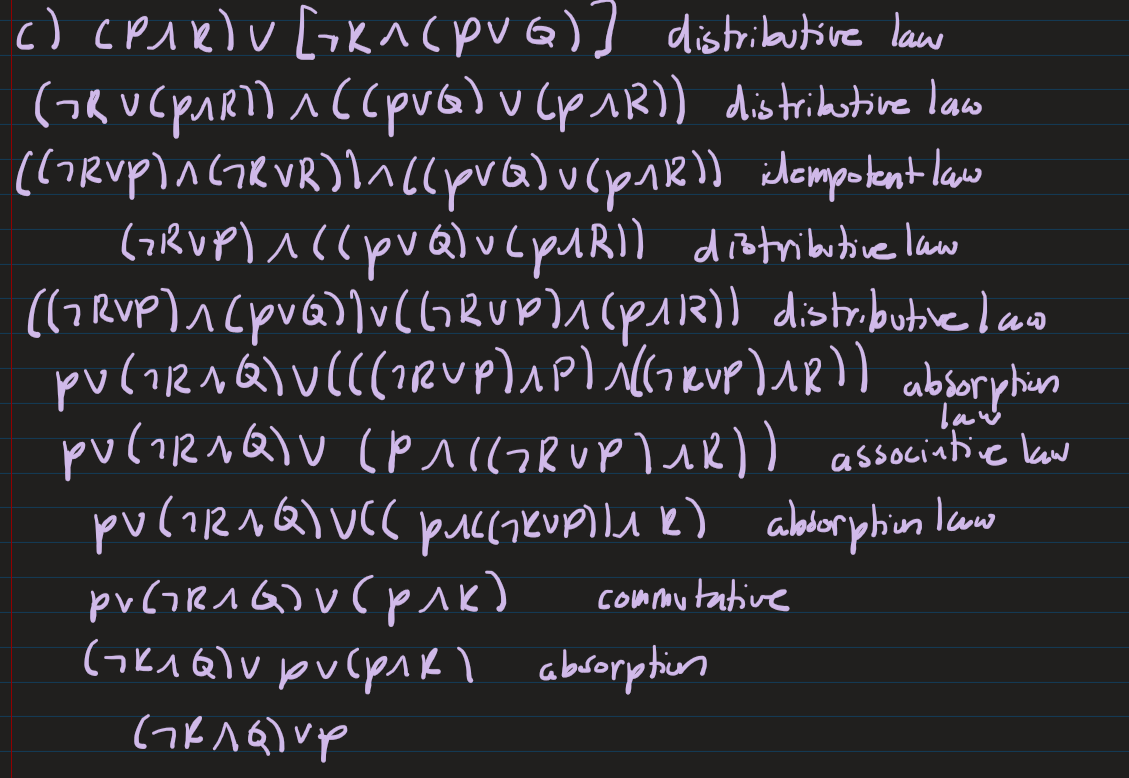 c) (P∧R)∨[¬R∧(P∨Q)] distributive law
(¬R∨(p∧R))∧((p∨Q)∨(p∧R)) distributive law
((¬R∨p)∧(¬R∨R))∧((p∨Q)∨(p∧R)) idempotent law
(¬R∨P)∧((p∨Q)∨(p∧R)) distributive law
((¬R∨P)∧(p∨Q))∨((¬R∨P)∧(p∧R)) distributive law
p∨(¬R∧Q)∨(((¬R∨P)∧P)∧((¬R∨p)∧R)) absorption law
p∨(¬R∧Q)∨(P∧((¬R∨P)∧R)) associative law
p∨(¬R∧Q)∨((p∧((¬R∨P))∧R) absorption law
p∨(¬R∧Q)∨(p∧R) commutative
(¬R∧Q)∨p∨(p∧R) absorption
(¬R∧Q)∨p